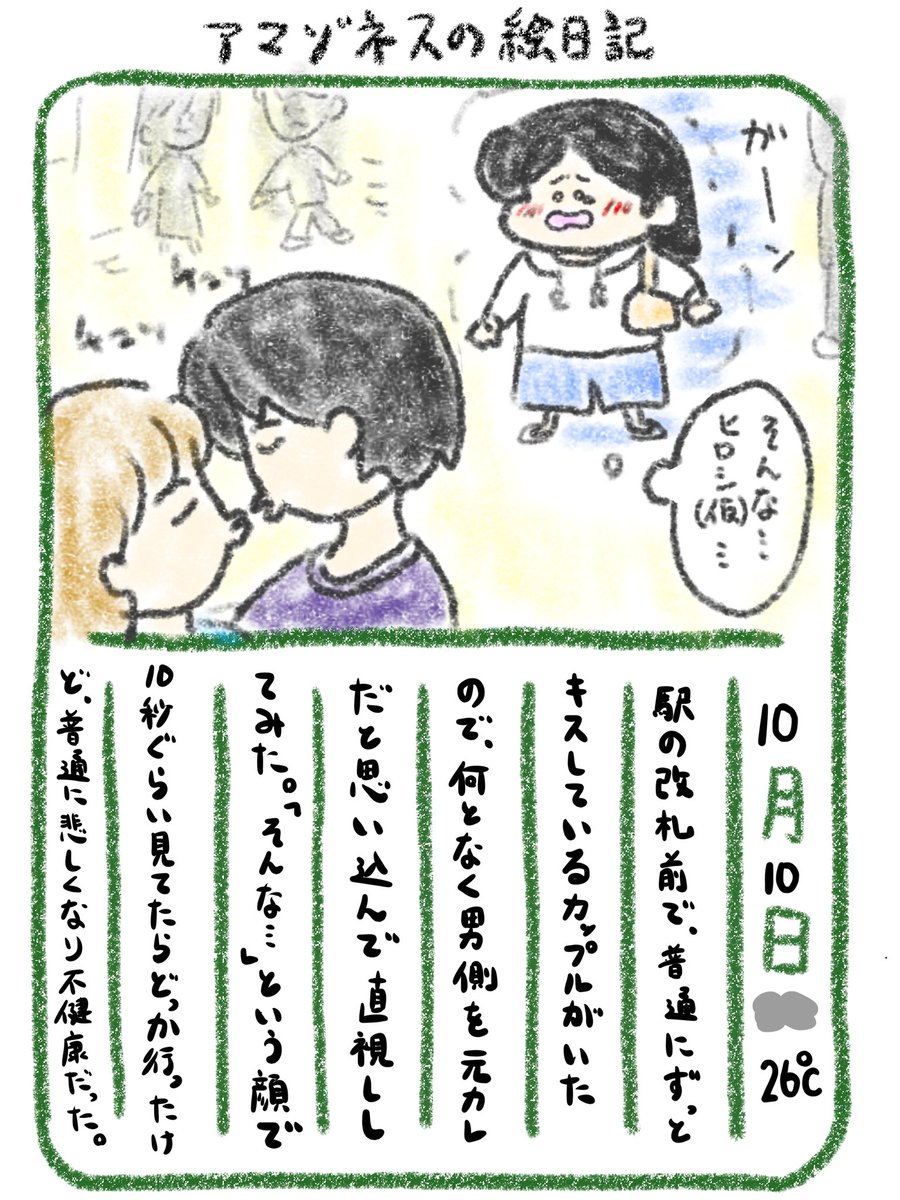 アマゾネスの絵日記
がーン
チュッ
チュッ
そんな……
ヒロシ(仮)……
10月10日 26℃
駅の改札前で、普通にずっと
キスしているカップルがいた
ので、何となく男側を元カレ
だと思い込んで直視し
てみた。「そんな…」という顔で
10秒ぐらい見てたらどっか行ったけ
ど、普通に悲しくなり不健康だった。